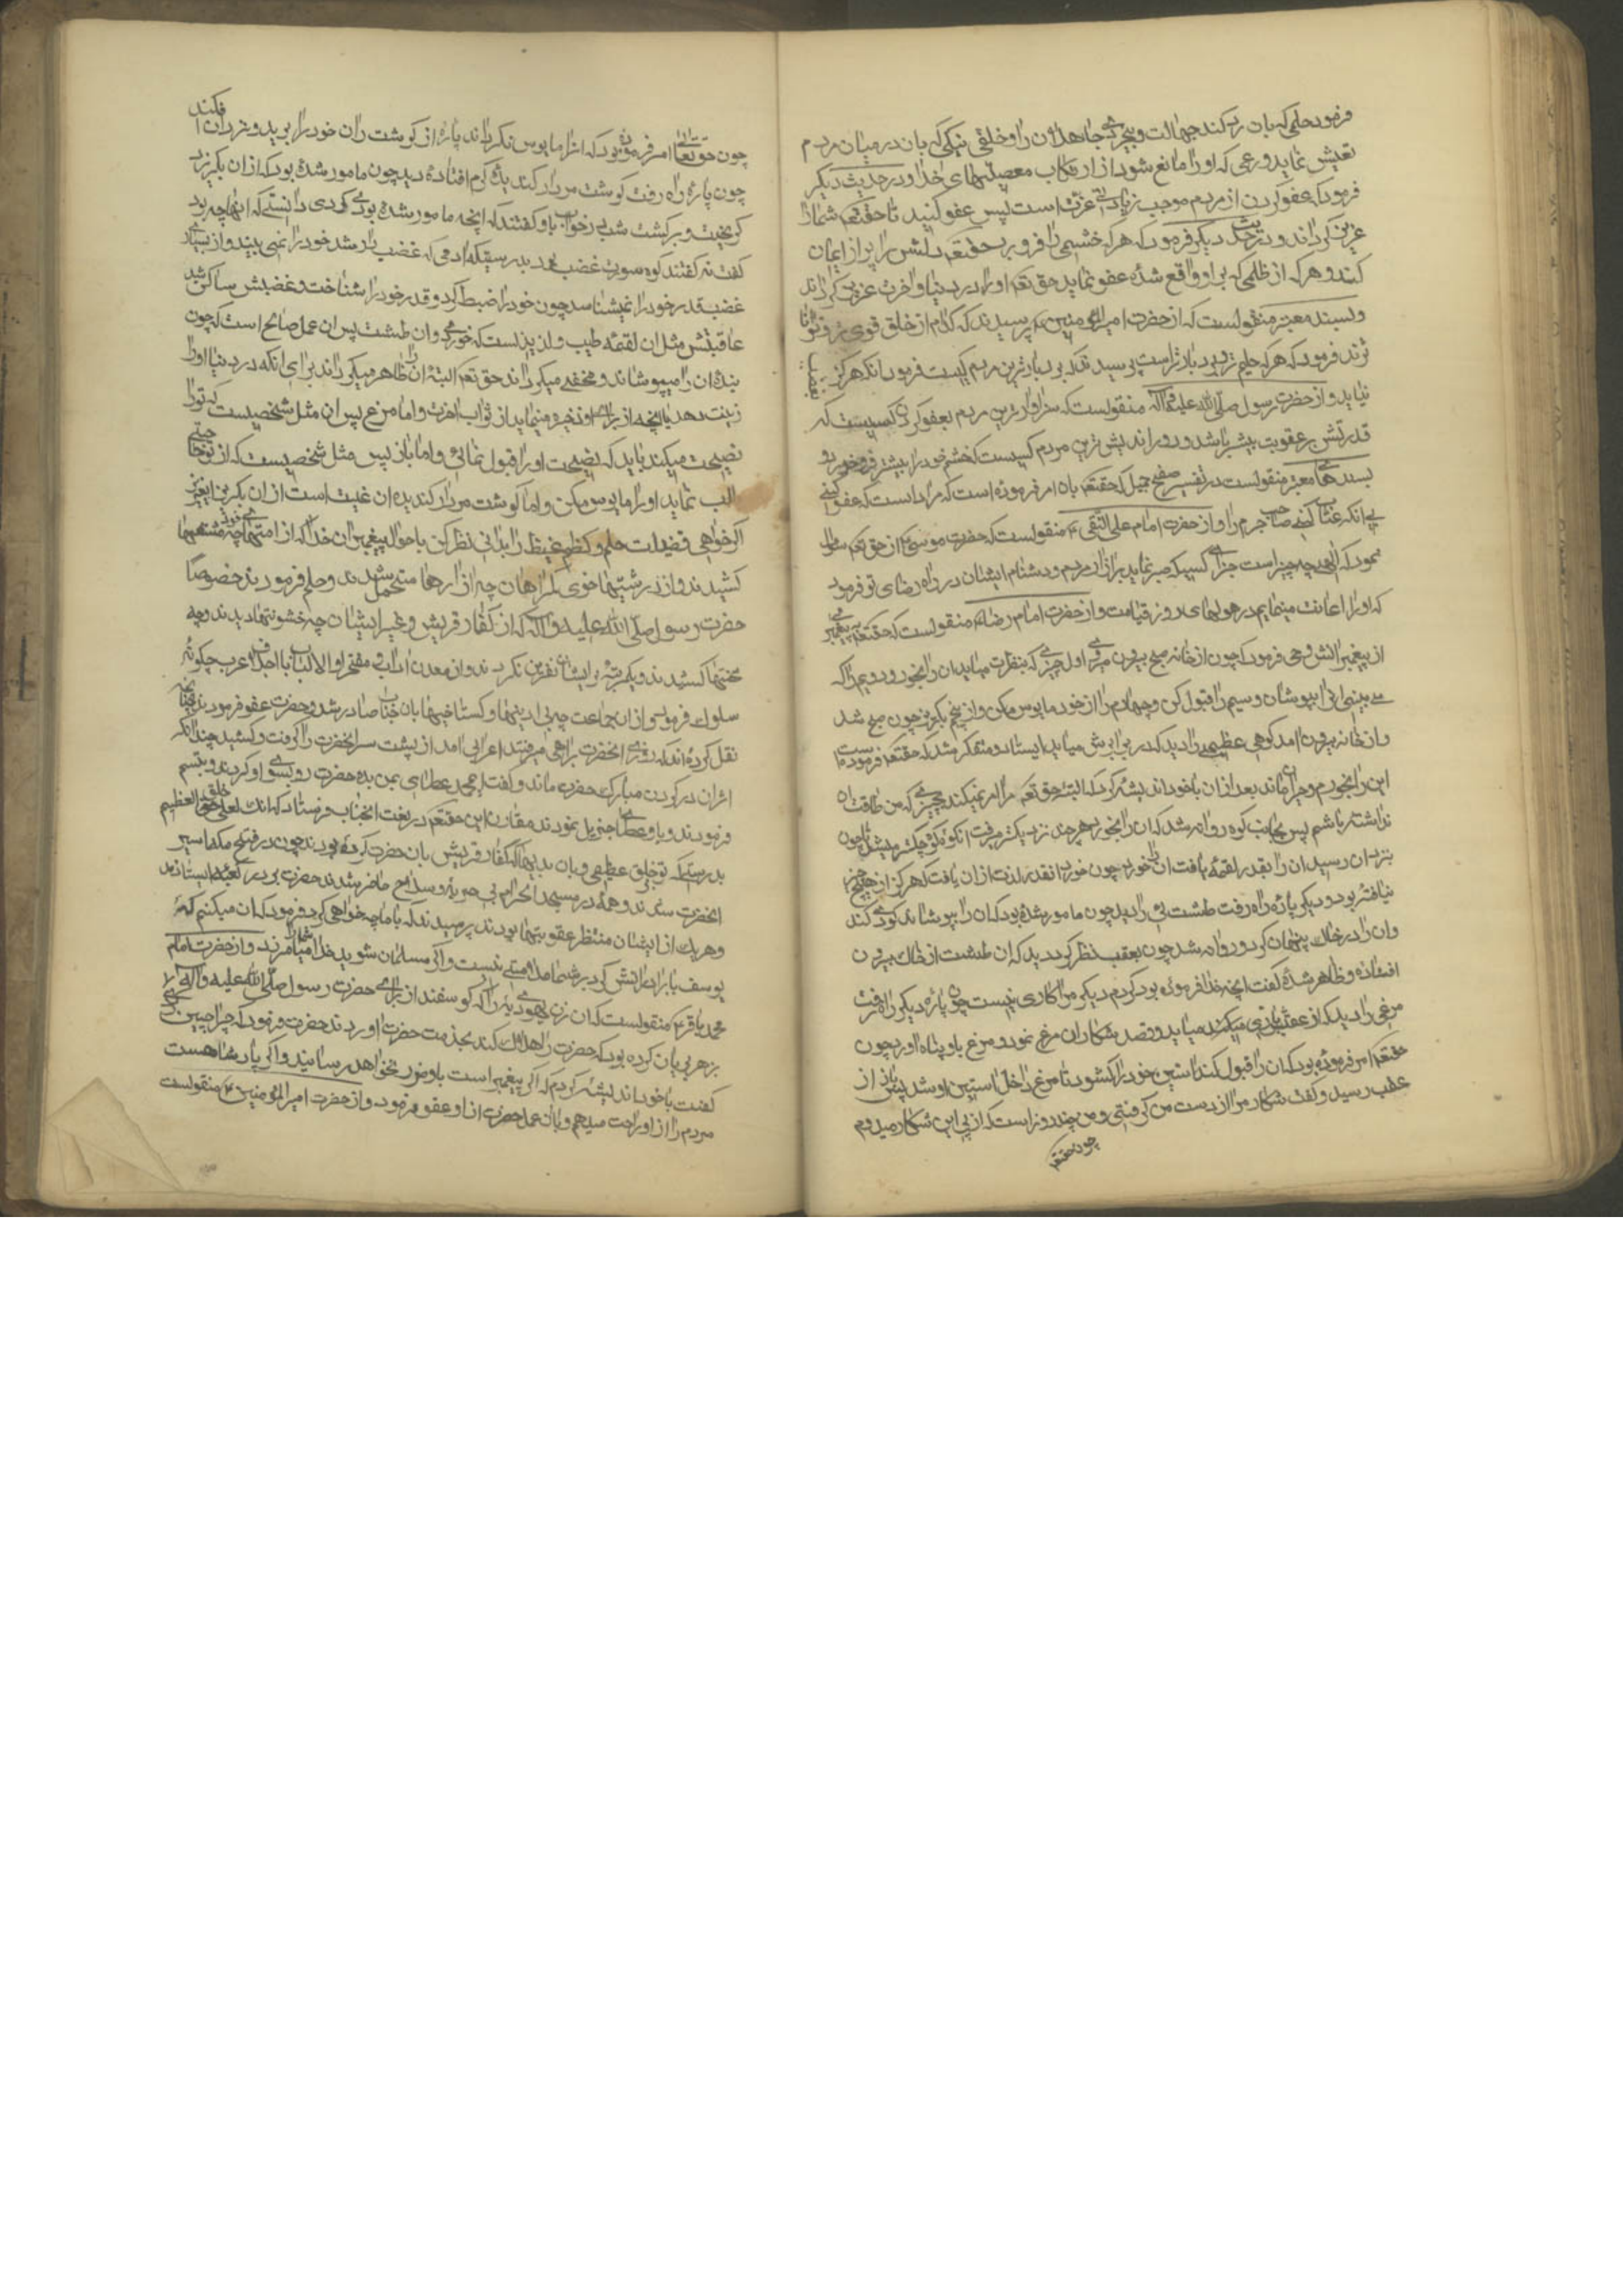 فرمود حلمی که بان رد کند جهالت و بیخردی جاهلان را و خلقی نیکی که بان در میان مردم
تعیش نماید و رعی که او را مانع شود از ارتکاب معصیتهای خدا و در حدیث دیگر
فرمود که عفو کردن از مردم موجب زیادتی عزت است پس عفو کنید تا حقتعم شما را
عزیز گرداند و در حدیث دیگر فرمود که هر که خشمی را فرو برد حقتعم دلش را پر از ایمان
کند و هر که از ظلمی که بر او واقع شده عفو نماید حق تعم او را در دنیا و اخرت عزیز گرداند
و بسند معتبر منقولست که از حضرت امیر المؤمنین ع پرسیدند که کدام از خلق قوی تر و توانا
ترند فرمود که هر که حلیم تر و بردبارتر است پرسیدند که بردبارترین مردم کیست فرمود آنکه هرگز بغضب
نیاید و از حضرت رسول صلی الله علیه و اله منقولست که سزاوارترین مردم بعفو کردن کسیست که
قدرتش بر عقوبت بیشتر باشد و دور اندیش ترین مردم کسیست که خشم خود را بیشتر فرو خورد و
بسندهای معتبر منقولست در تفسیر صفح جمیل که حقتعم بان امر فرموده است که مراد انست که عفو کنی
بی انکه عتاب کنی صاحب جرم را و از حضرت امام علی النقی ع منقولست که حضرت موسی ع از حق تعم سؤال
نمود که الهی چه چیز است جزای کسیکه صبر نماید بر ازار مردم و دشنام ایشان در راه رضای تو فرمود
که او را اعانت مینمایم در هولهای روز قیامت و از حضرت امام رضا ع منقولست که حقتعم به پیغمبری
از پیغمبرانش وحی فرمود که چون از خانه صبح بیرون میروی اول چیزی که بنظرت میاید ان را بخور و دویم را که
می بینی ان را بپوشان و سیم را قبول کن و چهارم را از خود مایوس مکن و از پنجم بگریز چون صبح شد
و از خانه بیرون امد کوهی عظیمی را دید که در برابرش میاید ایستاد و متفکر شد که حقتعم فرموده است
این را بخورم و حیران ماند بعد از ان با خود اندیشه کرد که البته حق تعم مرا امر نمیکند بچیزی که من طاقت ان
نداشته باشم پس بجانب کوه روانه شد که ان را بخورد هر چند نزدیکتر میرفت ان کوه کوچکتر میشد تا چون
بنزد ان رسید ان را بقدر لقمه یافت ان را خورد چون خورد انقدر لذت از ان یافت که هرگز از هیچ چیز
نیافته بود و دیگر پاره راه رفت طشت طلائی را دید چون مامور شده بود که ان را بپوشاند کودی کند
و ان را در خاک پنهان کرد و روانه شد چون بعقب نظر کرد دید که ان طشت از خاک بیرون
افتاده و ظاهر شده گفت انچه خدا فرموده بود کردم دیگر مرا کاری نیست چون پاره دیگر راه رفت
مرغی را دید که از عقبش بازی میاید و قصد شکار ان مرغ نمود و مرغ باو پناه اورد چون
حقتعم امر فرموده بود که ان را قبول کند استین خود را گشود تا مرغ داخل استین او شد پس باز از
عقب رسید و گفت شکار مرا از دست من گرفتی و من چند روز است که از پی این شکار میدوم
چون حقتعم
چون حقتعالی امر فرموده بود که انرا مایوس نگرداند پاره از گوشت ران خود را برید و نزد ان افکند
چون پاره راه رفت گوشت مردار گندیده کرم افتاده دید چون مامور شده بود که از ان بگریزد
گریخت و برگشت شب در خواب باو گفتند که انچه مامور شده بودی کردی دانستی که انها چه بود
گفت نه گفتند کوه صورت غضب بود بدرستیکه ادمی که غضب بر او مستولی شد خود را نمی بیند و از بسیاری
غضب قدر خود را نمیشناسد چون خود را ضبط کرد و قدر خود را شناخت و غضبش ساکن شد
عاقبتش مثل ان لقمه طیب و لذیذ است که خوردی و ان طشت پس ان عمل صالح است که چون
بنده ان را میپوشاند و مخفی میگرداند حق تعم البته ان را ظاهر میگرداند برای انکه در دنیا او را
زینت دهد با انچه از برای او ذخیره مینماید از ثواب اخرت و اما مرغ پس ان مثل شخصیست که تو را
نصیحت میکند باید که نصیحت او را قبول نمائی و اما باز پس مثل شخصیست که از تو حاجتی
طلب نماید او را مایوس مکن و اما گوشت مردار گندیده ان غیبت است از ان بگریز ای عزیز
اگر خواهی فضیلت حلم و کظم غیظ را بدانی نظر کن باحوال پیغمبران خدا که از امتهای خود چه مشقتها
کشیدند و از درشتیها خوی گمراهان چه ازارها متحمل شدند و حلم فرمودند خصوصا
حضرت رسول صلی الله علیه و اله که از کفار قریش و غیر ایشان چه خشونتها دیدند و چه
محنتها کشیدند و یکمرتبه بر ایشان نفرین نکردند و ان معدن اداب و مفخر اولا الالباب با اجلاف اعرب چگونه
سلوک فرمود و از ان جماعت چه بی ادبیها و گستاخیها بان جناب صادر شد و حضرت عفو فرمودند چنانچه
نقل کرده اند که روزی انحضرت براهی میرفتند اعرابی امد از پشت سر انحضرت ردا گرفت و کشید چندانکه
اثر ان در گردن مبارک حضرت ماند و گفت ای محمد عطای بمن بده حضرت رو بسوی او کردند و تبسم
فرمودند و باو عطای جزیل نمودند مقارن این حقتعم در نعت انجناب فرستاد که انک لعلی خلق العظیم
بدرستیکه تو بر خلق عظیمی و بان بدیهای که کفار قریش بان حضرت کرده بودند چون در فتح مکه اسیر
انحضرت شدند و همه در مسجد الحرام بی حربه و سلاح حاضر شدند حضرت بر در کعبه ایستادند
و هر یک از ایشان منتظر عقوبتها بودند پرسیدند که با ما چه خواهی کرد فرمود که ان میکنم که
یوسف با برادرانش کرد بر شما ملامتی نیست و اگر مسلمان شوید خدا شما را میامرزد و از حضرت امام
محمد باقر ع منقولست که ان زن یهودیه را که گوسفند از برای حضرت رسول صلی الله علیه و اله
بزهر بریان کرده بود که حضرت را هلاک کند بخدمت حضرت اوردند حضرت فرمود که چرا چنین کردی
گفت با خود اندیشه کردم که اگر پیغمبر است باو ضرر نخواهد رسانید و اگر پادشاه هست
مردم را از او راحت میدهم و بان عمل حضرت از او عفو فرمود و از حضرت امیر المؤمنین ع منقولست